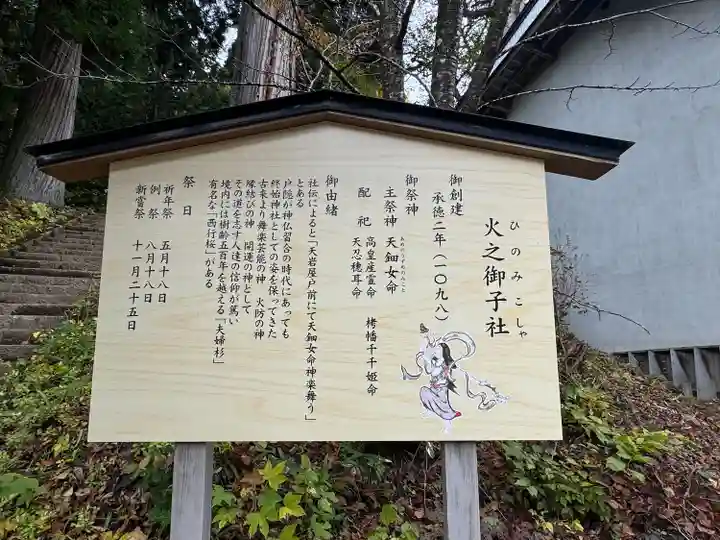 ひのみこしゃ
火之御子社
御創建
承徳二年(一〇九八)
御祭神
主祭神 天鈿女命
配祀 高皇産霊命 栲幡千千姫命
天忍穂耳命
御由緒
社伝によると「天岩屋戸前にて天鈿女命神楽舞う」
とある
戸隠が神仏習合の時代にあっても
終始神社としての姿を保ってきた
古来より舞楽芸能の神 火防の神
縁結びの神 開運の神として
その道を志す人達の信仰が篤い
境内には樹齢五百年を越える「夫婦杉」
有名な「西行桜」がある
祭日
祈年祭 五月十八日
例祭 八月十八日
新嘗祭 十一月二十五日